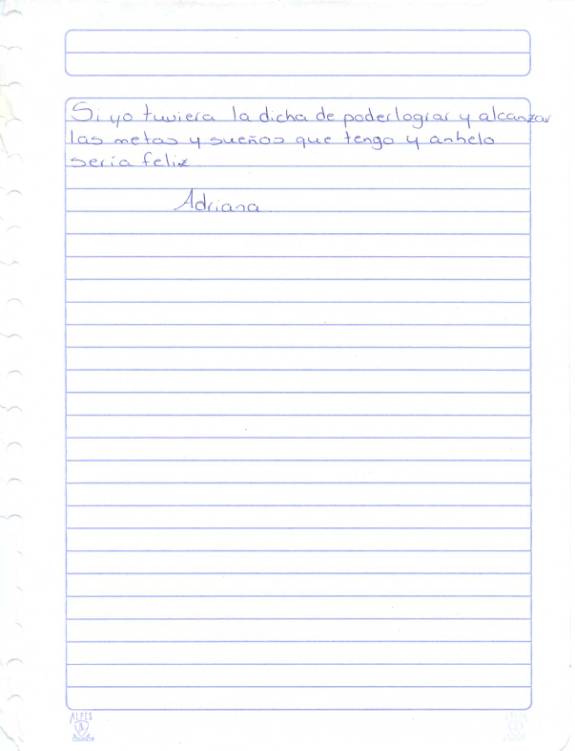 Si yo tuviera la dicha de poder lograr y alcanzar
las metas y sueños que tengo y anhelo
seria feliz
Adriana
ALPES